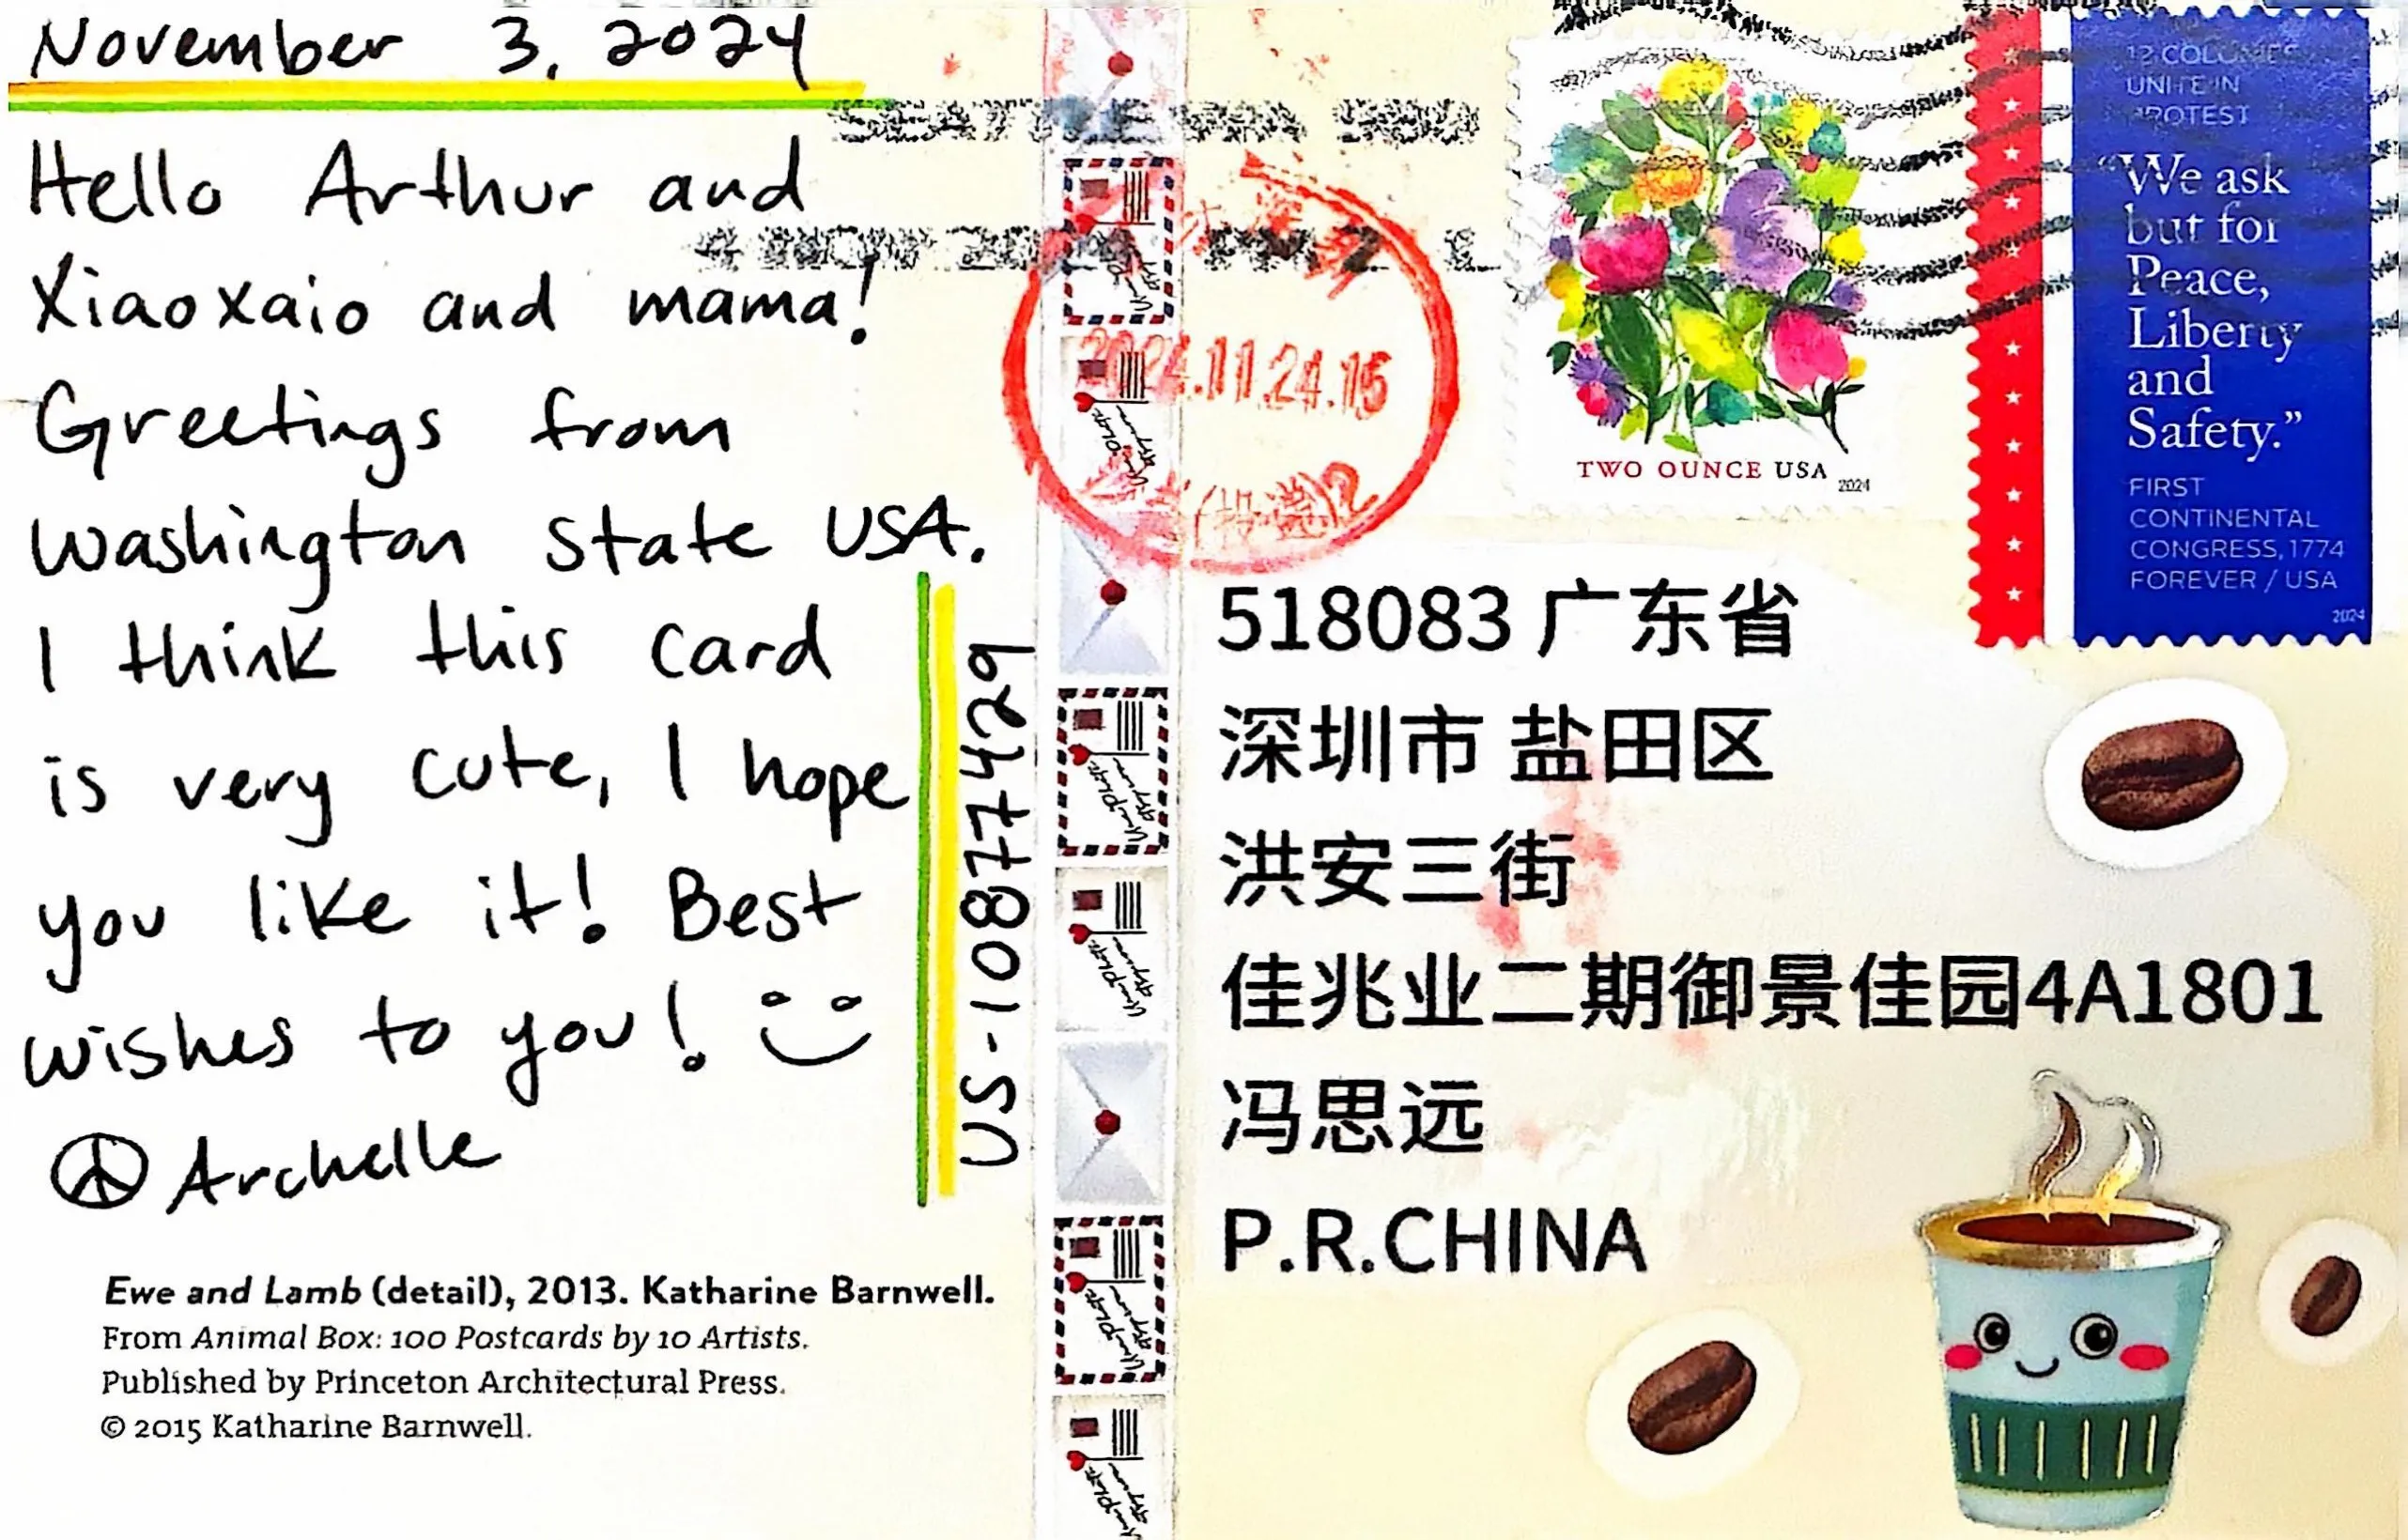 November 3, 2024
Hello Arthur and
Xiaoxaio and mama!
Greetings from
Washington state USA.
I think this card
is very cute, I hope
you like it! Best
wishes to you!
Archelle
US-10877429
Ewe and Lamb (detail), 2013. Katharine Barnwell.
From Animal Box: 100 Postcards by 10 Artists.
Published by Princeton Architectural Press.
© 2015 Katharine Barnwell.
2024.11.24.15
TWO OUNCE USA 2024
12 COLONIES
UNITE IN
PROTEST
“We ask
but for
Peace,
Liberty
and
Safety.”
FIRST
CONTINENTAL
CONGRESS, 1774
FOREVER / USA
2024
518083 广东省
深圳市 盐田区
洪安三街
佳兆业二期御景佳园4A1801
冯思远
P.R.CHINA